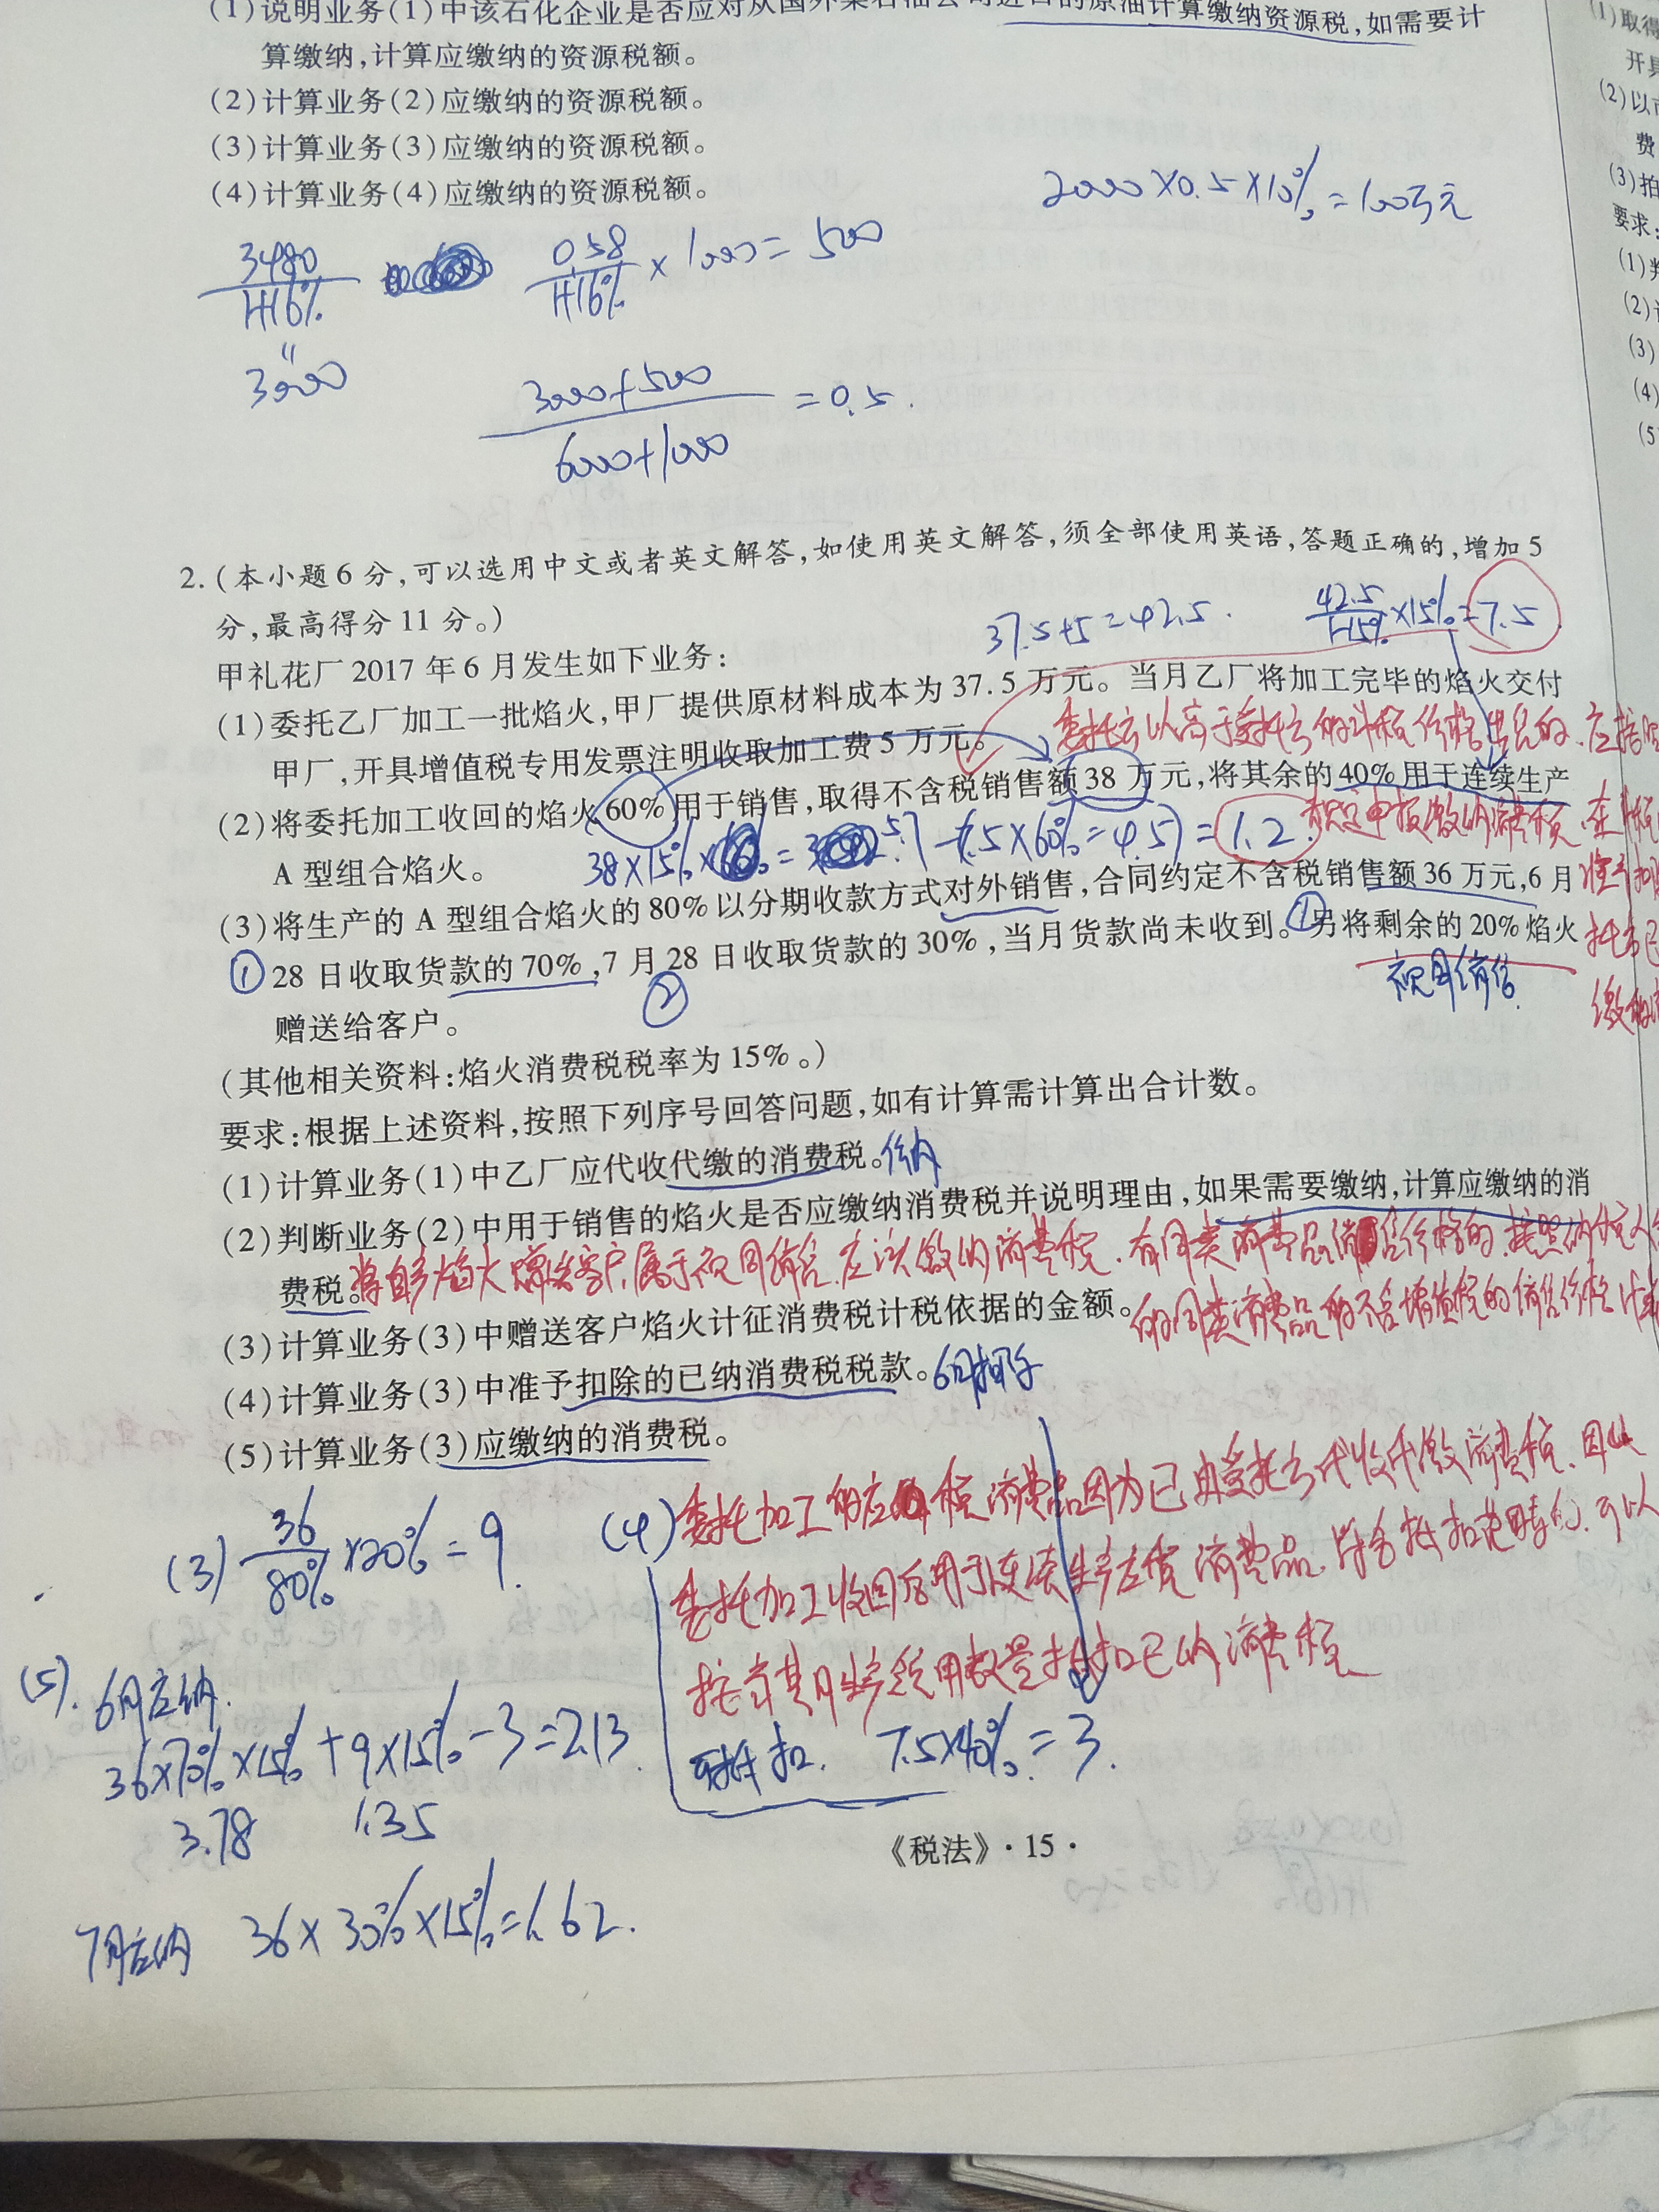 (1)说明业务(1)中该石化企业是否应对从国外某石油公司进口的原油计算缴纳资源税,如需要计
算缴纳,计算应缴纳的资源税额。
(2)计算业务(2)应缴纳的资源税额。
(3)计算业务(3)应缴纳的资源税额。
(4)计算业务(4)应缴纳的资源税额。
2000×0.5×10%=100万元
3480/1+16% 0.58/1+16%×1000=500
=3000
3000+500/6000+1000=0.5.
2.(本小题6分,可以选用中文或者英文解答,如使用英文解答,须全部使用英语,答题正确的,增加5
分,最高得分11分。)
37.5+5=42.5. 42.5/1-15%×15%=7.5
甲礼花厂2017年6月发生如下业务:
(1)委托乙厂加工一批焰火,甲厂提供原材料成本为37.5万元。当月乙厂将加工完毕的焰火交付
甲厂,开具增值税专用发票注明收取加工费5万元。
委托方以高于委托方的计税价格出售的,应按
(2)将委托加工收回的焰火60%用于销售,取得不含税销售额38万元,将其余的40%用于连续生产
规定申报缴纳消费税,在计税
A型组合焰火。
38×15%=5.7-7.5×60%=4.5)=1.2.
准予扣
(3)将生产的A型组合焰火的80%以分期收款方式对外销售,合同约定不含税销售额36万元,6月
①28日收取货款的70%,7月28日收取货款的30%,当月货款尚未收到。①另将剩余的20%焰火
托方已
② 视同销售.
缴纳
赠送给客户。
(其他相关资料:焰火消费税税率为15%。)
要求:根据上述资料,按照下列序号回答问题,如有计算需计算出合计数。
(1)计算业务(1)中乙厂应代收代缴的消费税。
(2)判断业务(2)中用于销售的焰火是否应缴纳消费税并说明理由,如果需要缴纳,计算应缴纳的消
费税。
将自产焰火赠送客户,属于视同销售,应该缴纳消费税,有同类消费品销售价格的,按照纳税人
的同类消费品的不含增值税的销售价格计
(3)计算业务(3)中赠送客户焰火计征消费税计税依据的金额。
(4)计算业务(3)中准予扣除的已纳消费税税款。
6月扣除
(5)计算业务(3)应缴纳的消费税。
(3)36/80%×20%=9.
(4)委托加工的应税消费品因为已由受托方代收代缴消费税,因此
委托加工收回后用于连续生产应税消费品,符合抵扣范围的,可以
按当期生产领用数量抵扣已纳消费税
可抵扣. 7.5×40%=3.
(5).6月应纳.
36×70%×15%+9×15%-3=2.13
3.78 1.35
7月应纳 36×30%×15%=1.62.
《税法》·15·
(1)取得
开具
(2)以
费
(3)拍
要求:
(1)判
(2)
(3)
(4)
(5